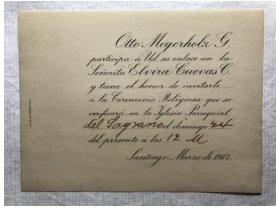 Otto Meyerholz G.
participa á Ud. su enlace con la
Señorita Elvira Cuevas C.
y tiene el honor de invitarle
á la Ceremonia Religiosa que se
verificará en la Iglesia Parroquial
del Sagrario el domingo 24
del presente á las 12 M
Santiago, Marzo de